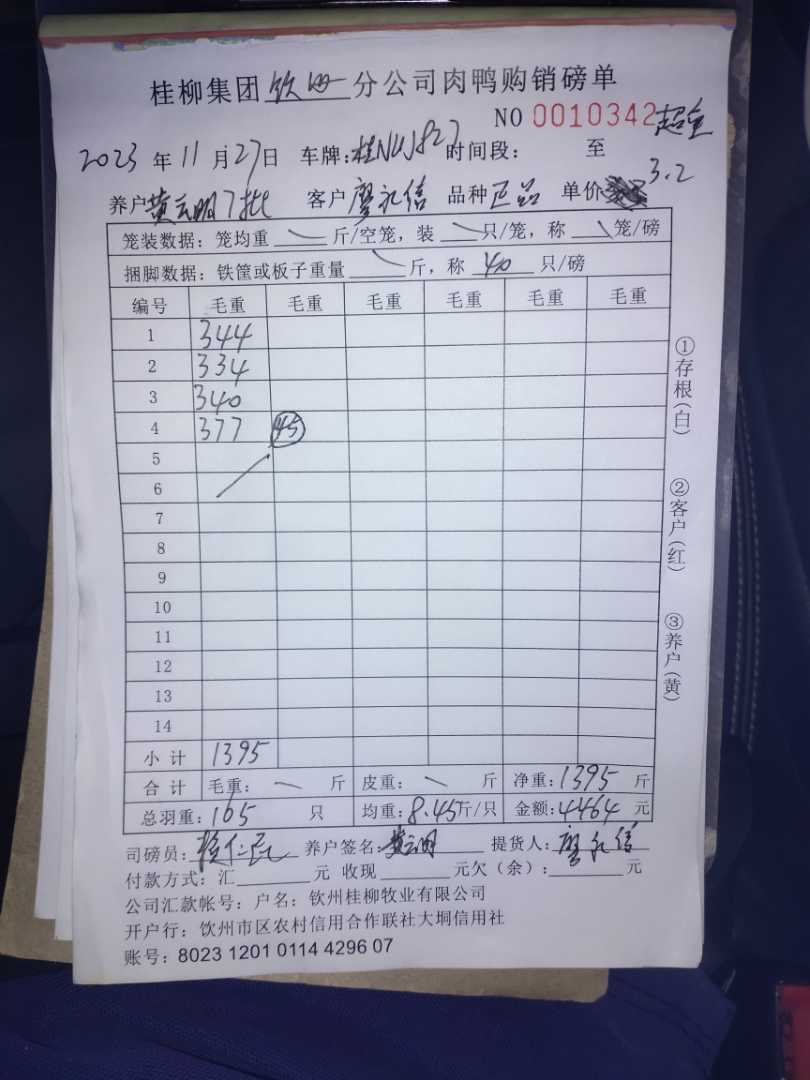 桂柳集团 钦州 分公司肉鸭购销磅单
NO 0010342
2023 年 11 月 27 日 车牌: 时间段: 至
养户 黄云明 7批 客户 廖礼信 品种 正品 单价 3.2
笼装数据: 笼均重 斤/空笼, 装 只/笼, 称 笼/磅
捆脚数据: 铁筐或板子重量 斤, 称 40 只/磅
编号 毛重 毛重 毛重 毛重 毛重 毛重
1 344
2 334
3 340
4 377 45
5
6
7
8
9
10
11
12
13
14
小计 1395
合计 毛重: 斤 皮重: 斤 净重: 1395 斤
总羽重: 165 只 均重: 8.45 斤/只 金额: 4464 元
司磅员: 养户签名: 黄云明 提货人: 廖礼信
付款方式: 汇 元 收现 元欠(余): 元
公司汇款帐号: 户名: 钦州桂柳牧业有限公司
开户行: 钦州市区农村信用合作联社大垌信用社
账号: 8023 1201 0114 4296 07
①存根(白)
②客户(红)
③养户(黄)